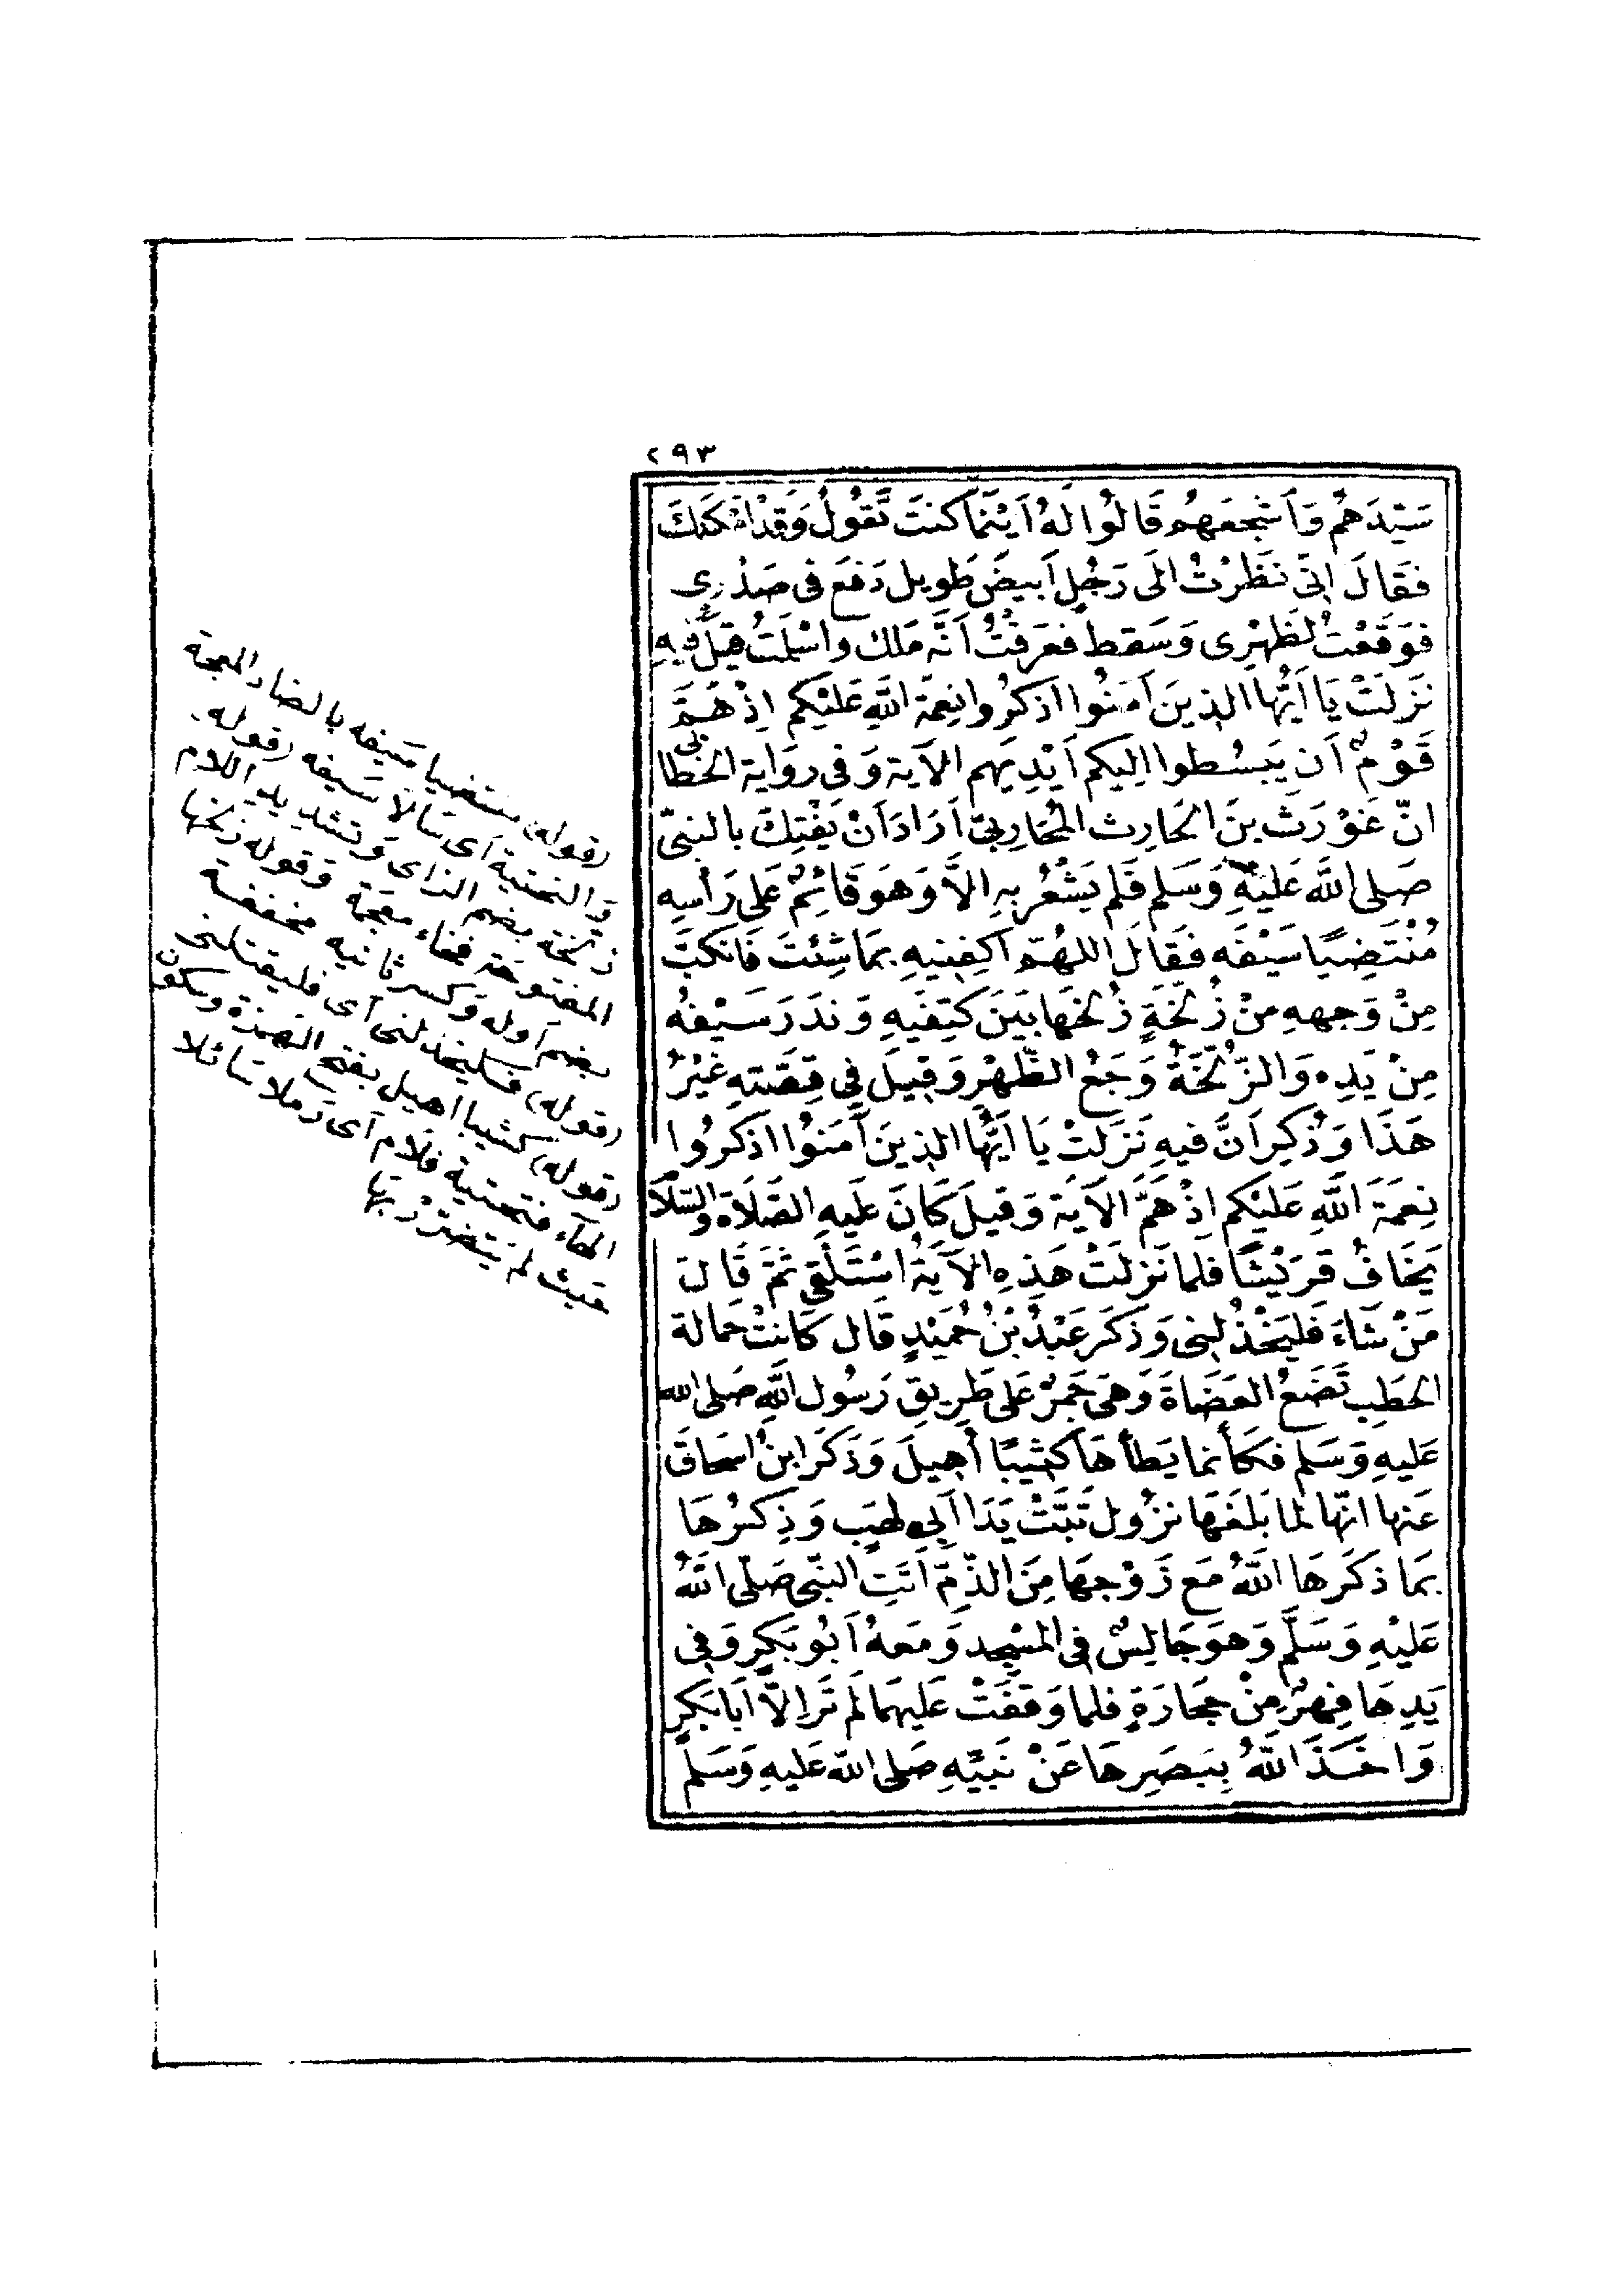 ٢٩٣
سَيِّدَهُمْ وَأَشْجَعَهُمْ قَالُوا لَهُ أَيْنَمَا كُنتَ تَقُولُ وَقَدْ أَمْكَنَكَ
فَقَالَ إِنِّي نَظَرْتُ إِلَى رَجُلٍ أَبْيَضَ طَوِيلٍ دَفَعَ فِي صَدْرِي
فَوَقَعْتُ لِظَهْرِي وَسَقَطَ فَعَرَفْتُ أَنَّهُ مَلَكٌ وَأَسْلَمْتُ قِيلَ فِيهِ
نَزَلَتْ يَا أَيُّهَا الَّذِينَ آمَنُوا اذْكُرُوا نِعْمَةَ اللَّهِ عَلَيْكُمْ إِذْ هَمَّ
قَوْمٌ أَن يَبْسُطُوا إِلَيْكُمْ أَيْدِيَهُم الْآيَةَ وَفِي رِوَايَةِ الْخَطَّابِيّ
أَنَّ غَوْرَثَ بْنَ الْحَارِثِ الْمُحَارِبِيَّ أَرَادَ أَنْ يَفْتِكَ بِالنَّبِيِّ
صَلَّى اللَّهُ عَلَيْهِ وَسَلَّمَ فَلَمْ يَشْعُرْ بِهِ إِلَّا وَهُوَ قَائِمٌ عَلَى رَأْسِهِ
مُنْتَضِيًا سَيْفَهُ فَقَالَ اللَّهُمَّ اكْفِنِيهِ بِمَا شِئْتَ فَانْكَبَّ
مِنْ وَجْهِهِ مِنْ زُلَّخَةٍ زُلِّخَهَا بَيْنَ كَتِفَيْهِ وَنَدَرَ سَيْفُهُ
مِنْ يَدِهِ وَالزُّلَّخَةُ وَجَعُ الظَّهْرِ وَقِيلَ فِي قِصَّتِهِ غَيْرُ
هَذَا وَذُكِرَ أَنَّ فِيهِ نَزَلَتْ يَا أَيُّهَا الَّذِينَ آمَنُوا اذْكُرُوا
نِعْمَةَ اللَّهِ عَلَيْكُم إِذْ هَمَّ الْآيَةَ وَقِيلَ كَانَ عَلَيْهِ الصَّلَاةُ وَالسَّلَامُ
يَخَافُ قُرَيْشًا فَلَمَّا نَزَلَتْ هَذِهِ الْآيَةُ اسْتَلْقَى ثُمَّ قَالَ
مَنْ شَاءَ فَلْيَخْذُلْنِي وَذَكَرَ عَبْدُ بْنُ حُمَيْدٍ قَالَ كَانَتْ حَمَّالَةَ
الْحَطَبِ تَضَعُ الْعِضَاةَ وَهِيَ جَمْرٌ عَلَى طَرِيقِ رَسُولِ اللَّهِ صَلَّى اللهُ
عَلَيْهِ وَسَلَّمَ فَكَأَنَّمَا يَطَأُهَا كَثِيبًا أَهِيلَ وَذَكَرَ ابْنُ إِسْحَاقَ
عَنْهَا أَنَّهَا لَمَّا بَلَغَهَا نُزُولُ تَبَّتْ يَدَا أَبِي لَهَبٍ وَذِكْرُهَا
بِمَا ذَكَرَهَا اللَّهُ مَعَ زَوْجِهَا مِنَ الذَّمِّ أَتَتِ النَّبِيَّ صَلَّى اللَّهُ
عَلَيْهِ وَسَلَّمَ وَهُوَ جَالِسٌ فِي الْمَسْجِدِ وَمَعَهُ أَبُو بَكْرٍ وَفِي
يَدِهَا فِهْرٌ مِنْ حِجَارَةٍ فَلَمَّا وَقَفَتْ عَلَيْهِمَا لَمْ تَرَ إِلَّا أَبَا بَكْرٍ
وَأَخَذَ اللَّهُ بِبَصَرِهَا عَنْ نَبِيِّهِ صَلَّى اللهُ عَلَيْهِ وَسَلَّمَ
(قوله) منتضيا سيفه بالضاد المعجمة
والتحتية أى سَالاً سَيفه (قوله)
زلخة بضم الزاى وتشديد اللام
المفتوحة فخاء معجمة وقوله زلخها
بضم أوله وكسر ثانيه مخففة
(قوله) فليخذلنى أى فليقتلنى
(قوله) كثيبا أهيل بفتح الهمزة وسكون
الهاء فتحتية فلام أى رملا سَائلا
حيث لم يتضرر بها